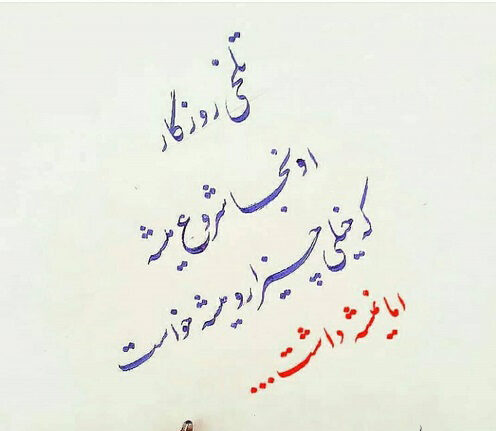 تلخی روزگار
اونجا شروع میشه
که خیلی چیزارو میشه خواست
اما نمیشه داشت...